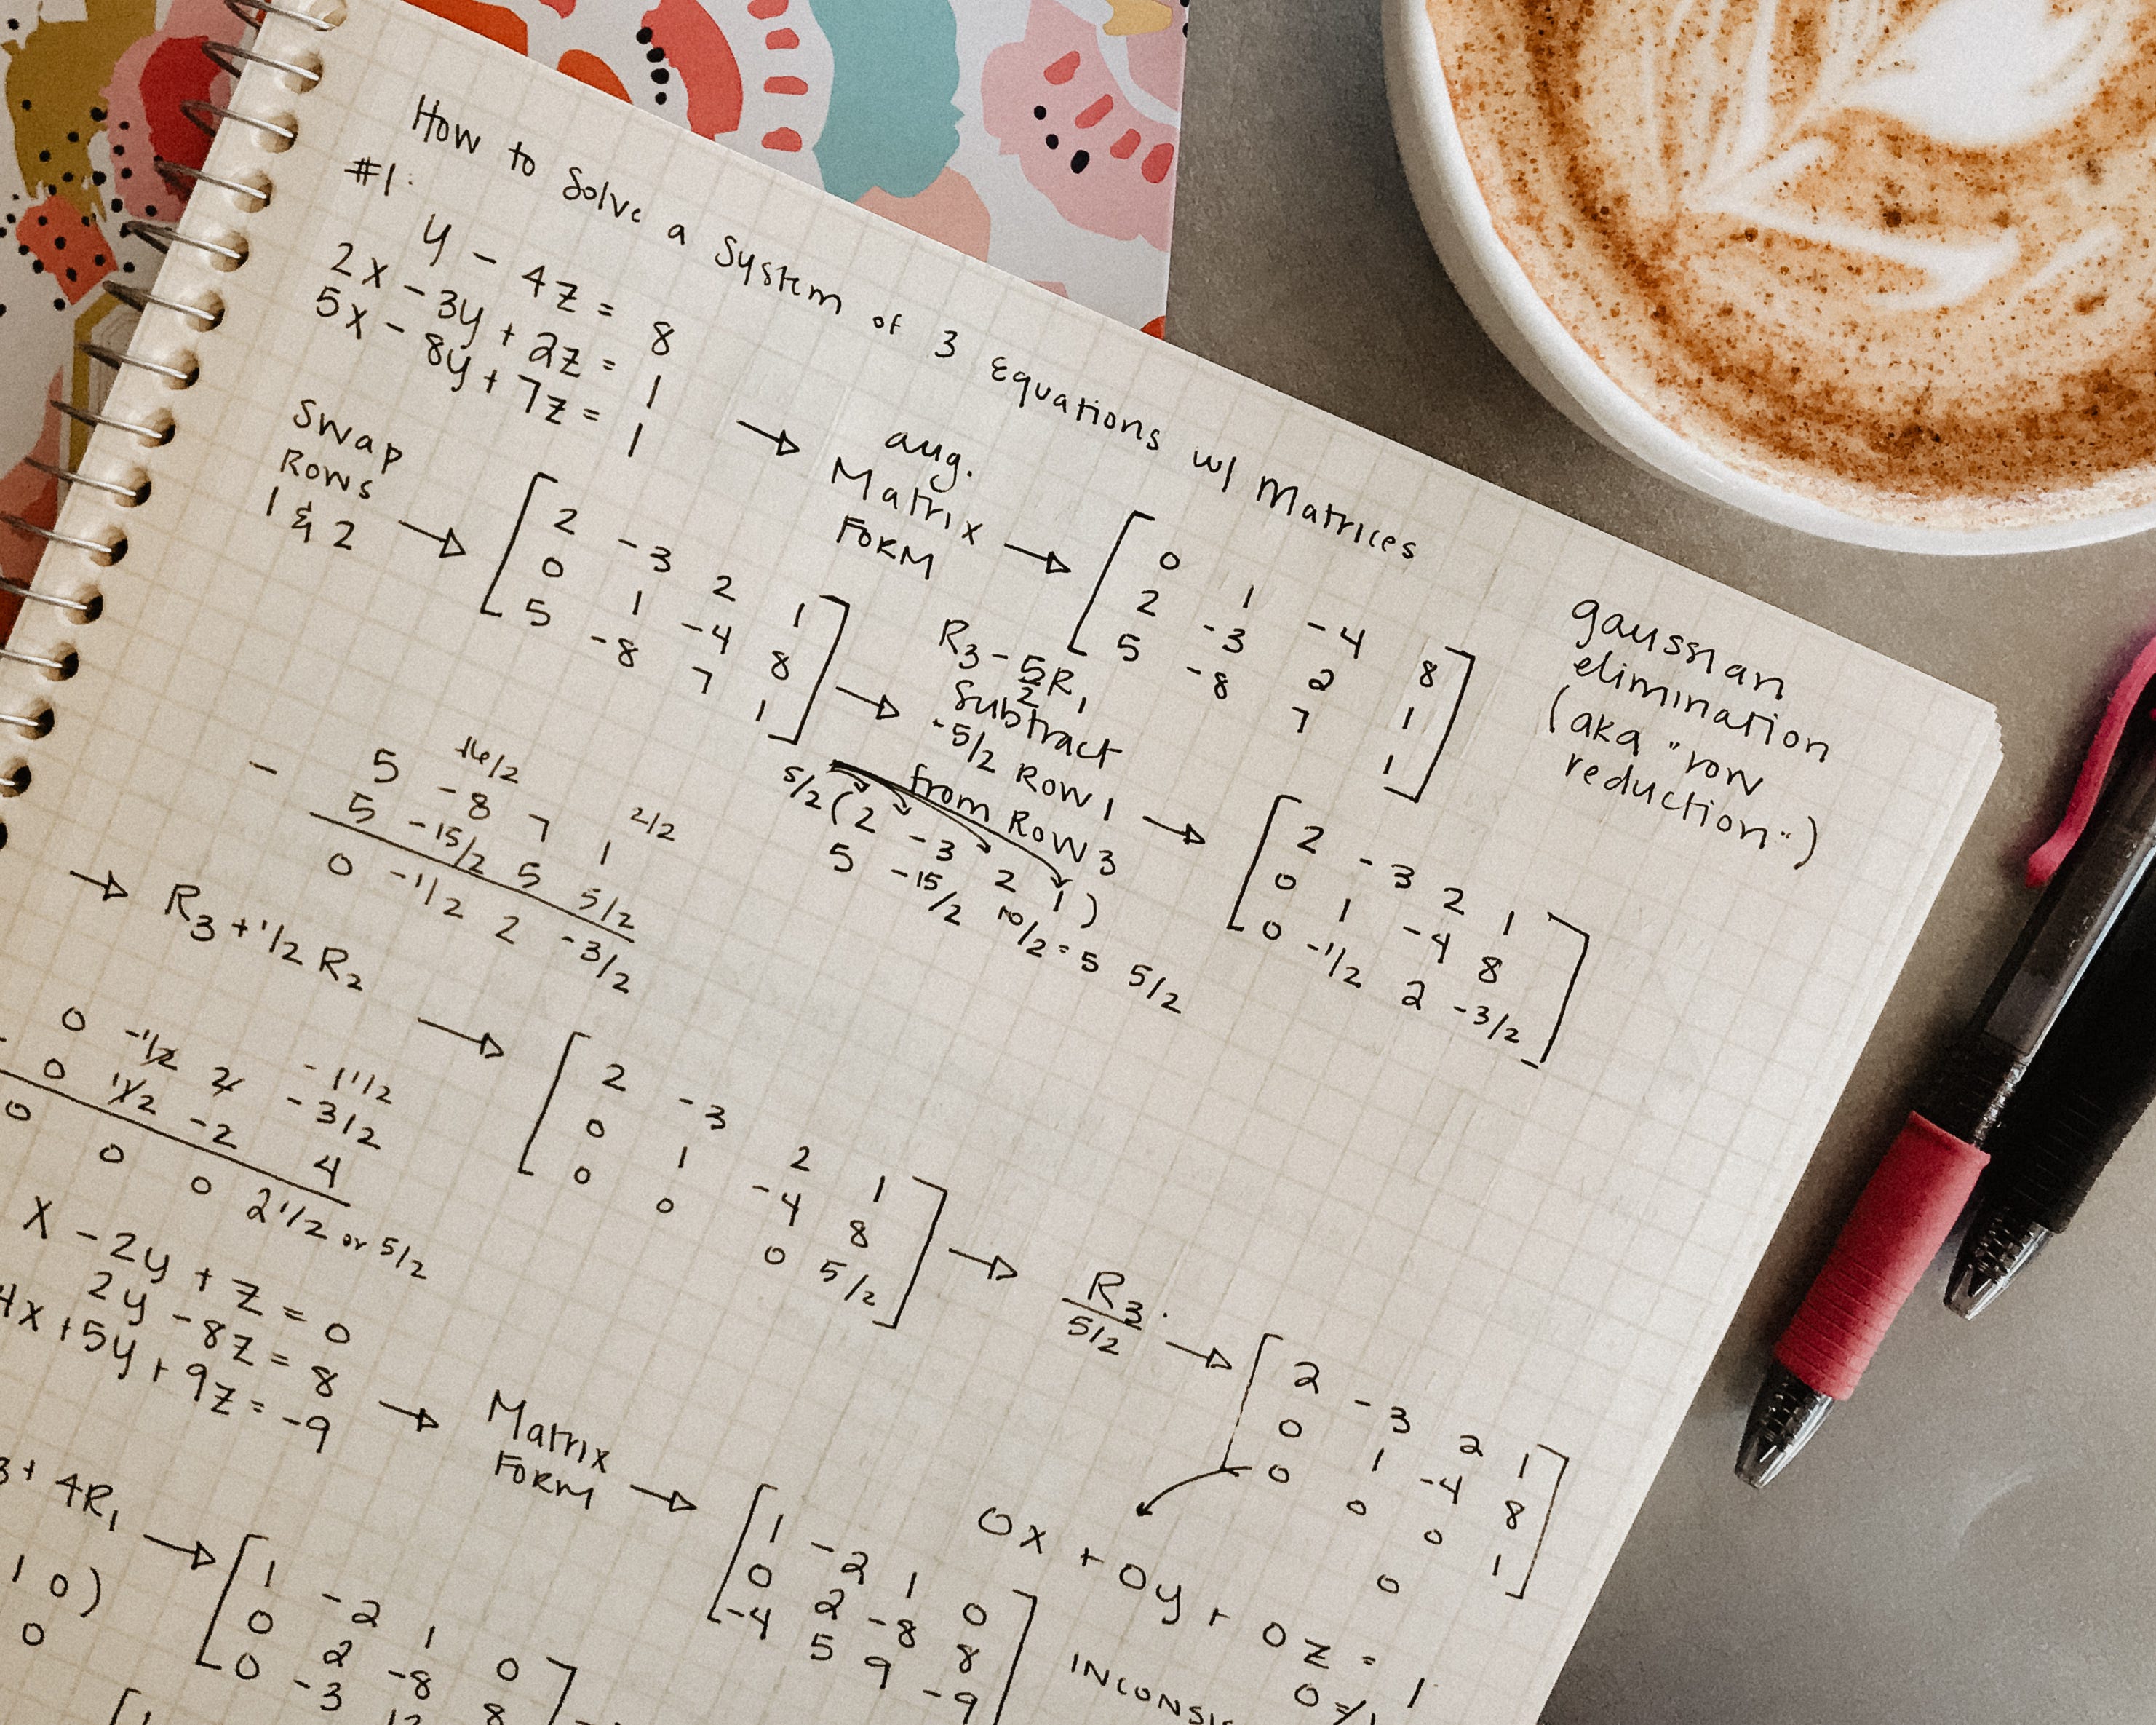 How to Solve a System of 3 Equations w/ Matrices
#1:
y - 4z = 8
2x - 3y + 2z = 1
5x - 8y + 7z = 1
→ aug.
Matrix
Form →
[ 0 1 -4 8
2 -3 2 1
5 -8 7 1 ]
gaussian
elimination
(aka "row
reduction")
Swap
Rows
1 & 2 →
[ 2 -3 2 1
0 1 -4 8
5 -8 7 1 ]
→ R3 - 5/2 R1
Subtract
-5/2 Row 1
from Row 3 →
5/2 ( 2 -3 2 1 )
5 -15/2 10/2 = 5 5/2
[ 2 -3 2 1
0 1 -4 8
0 -1/2 2 -3/2 ]
16/2 2/2
5 -8 7 1
- 5 -15/2 5 5/2
0 -1/2 2 -3/2
→ R3 + 1/2 R2 →
-1 1/2
0 -1/2 2 -3/2
0 1/2 -2 4
0 0 0 2 1/2 or 5/2
[ 2 -3 2 1
0 1 -4 8
0 0 0 5/2 ]
→ R3
5/2 →
[ 2 -3 2 1
0 1 -4 8
0 0 0 1 ]
0x + 0y + 0z = 1
0
0 ≠ 1
x - 2y + z = 0
2y - 8z = 8
4x + 5y + 9z = -9
→ Matrix
Form →
[ 1 -2 1 0
0 2 -8 8
-4 5 9 -9 ]
3 + 4R1 →
1 0 )
0
[ 1 -2 1 0
0 2 -8 8
0 -3